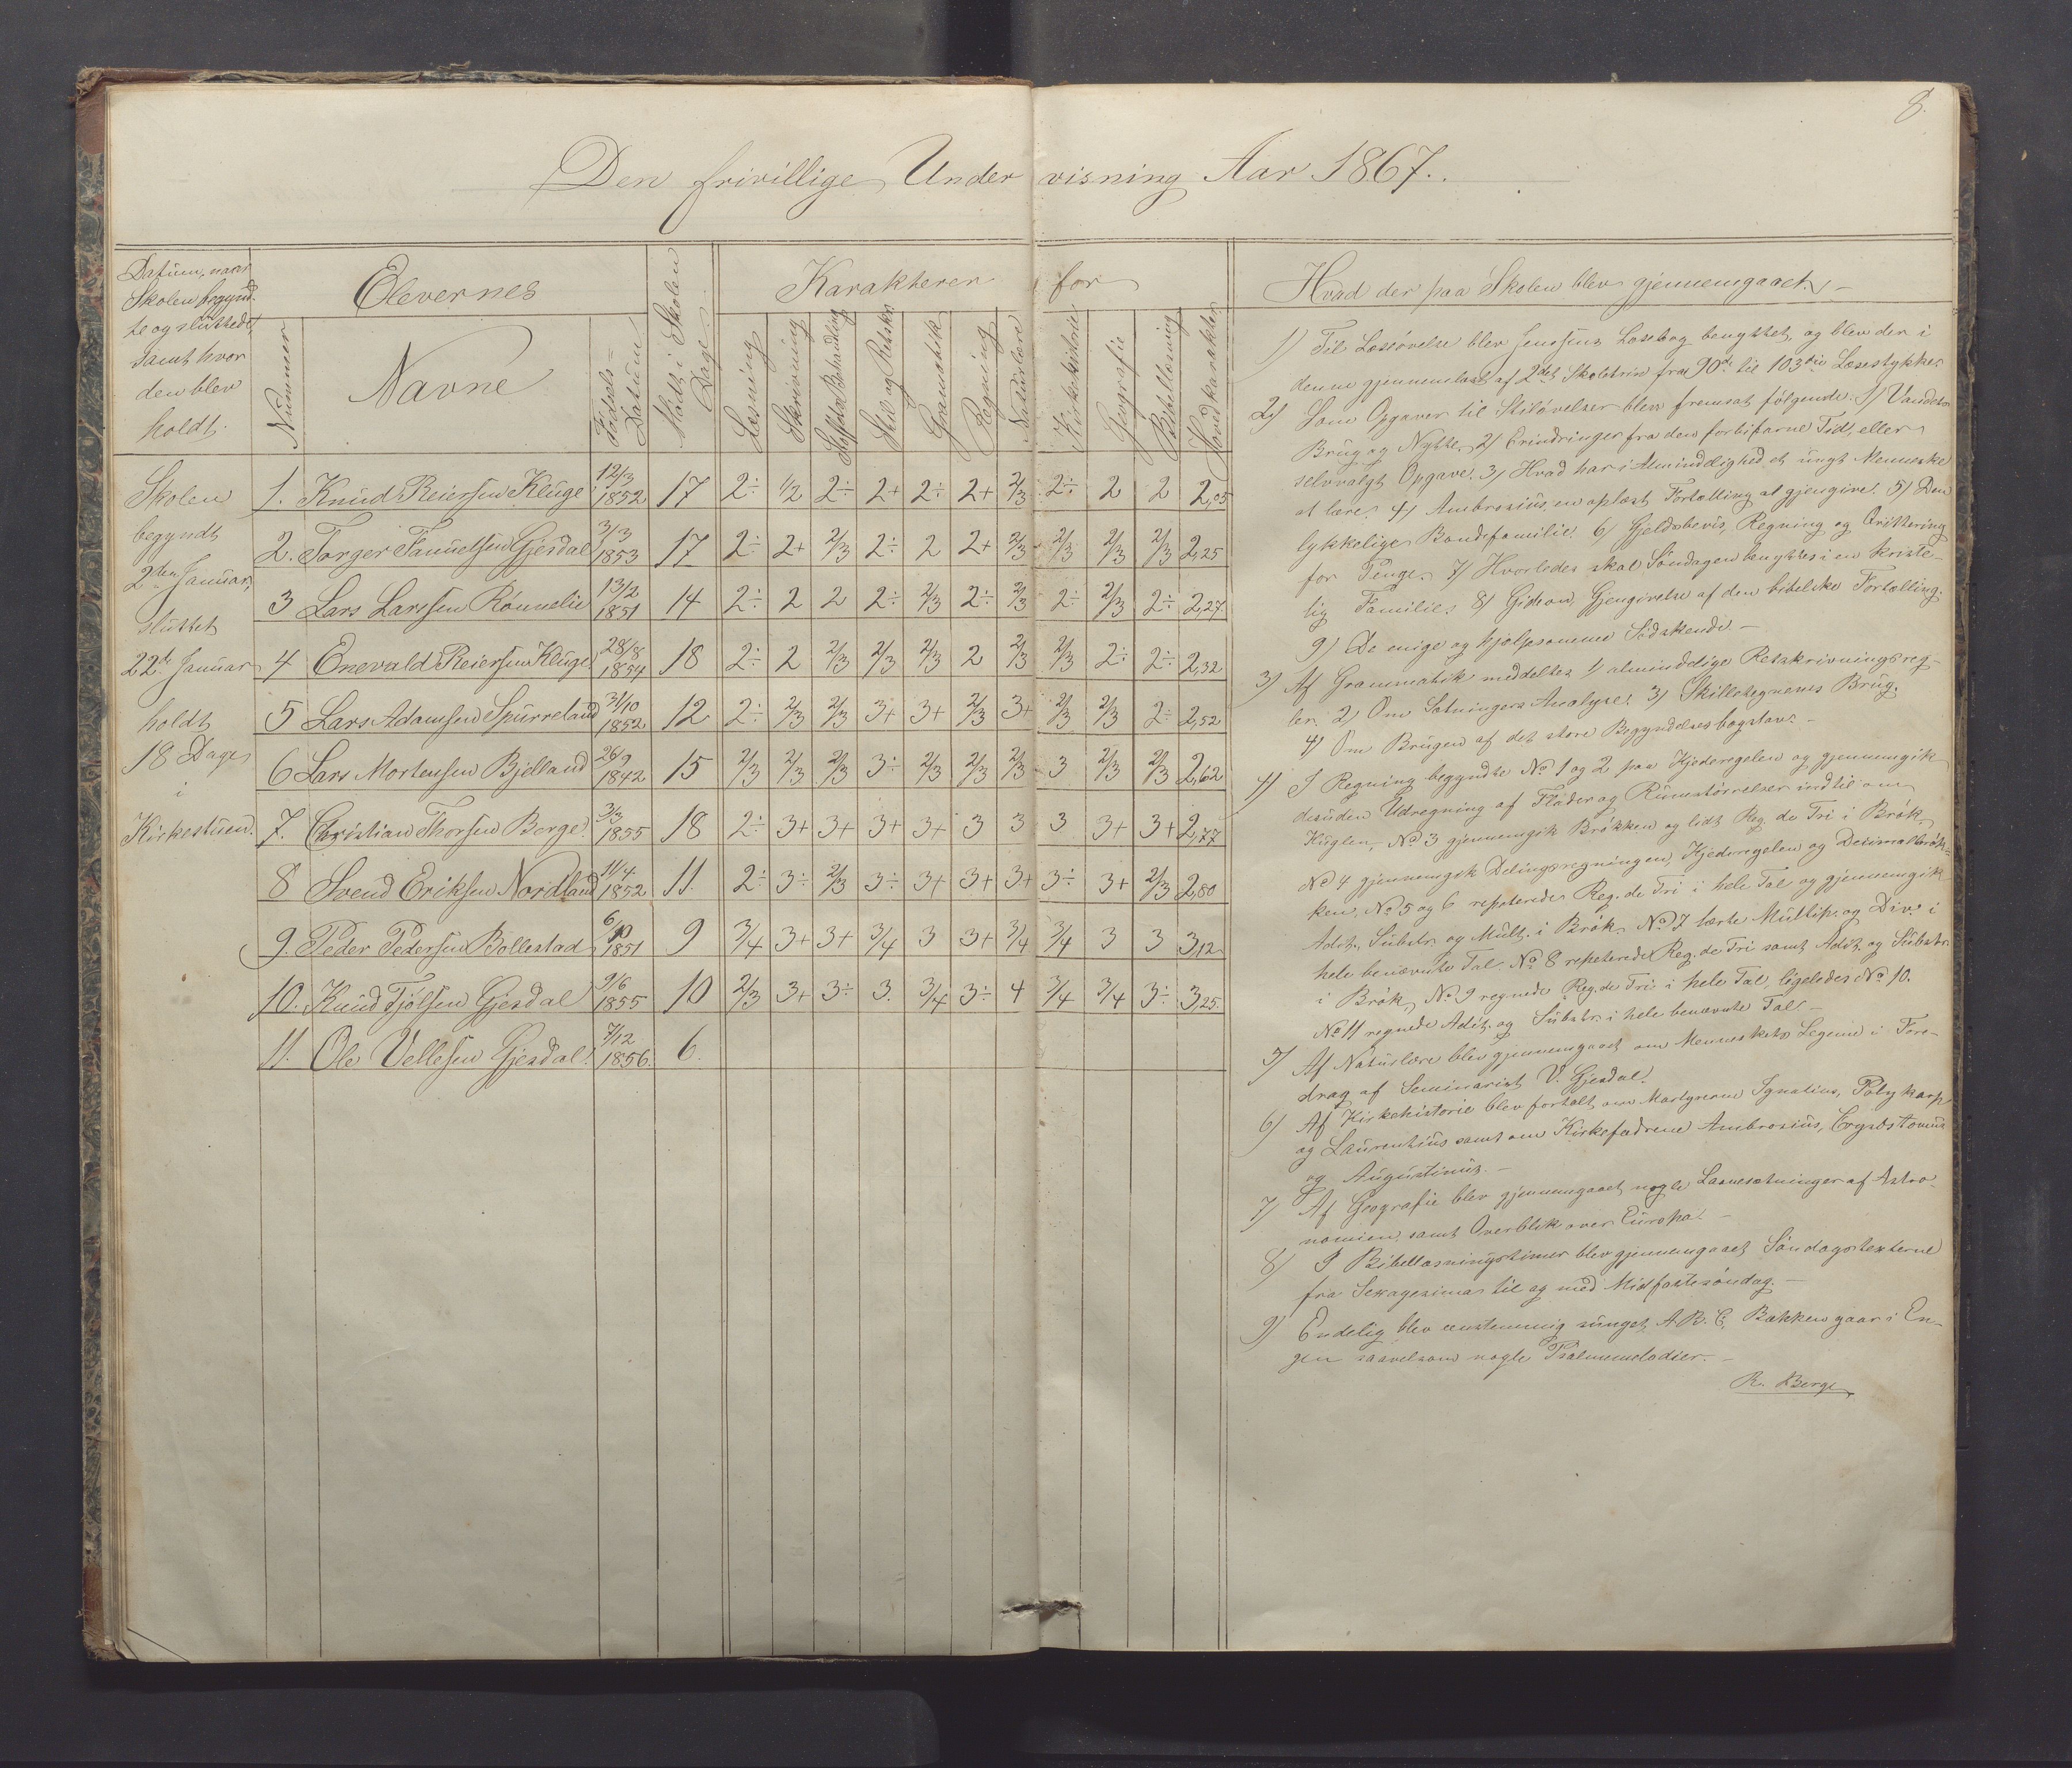 8.
Den frivillige Undervisning Aar 1867.
Datum, naar
Skolen begynd-
te og sluttede,
samt hvor
den blev
holdt.
Elevernes
Nummer
Navne
Fødsels-
Datum
Mødt i Skolen
Dage.
Karakterer for
Læsning
Skrivning
Stoffets Behandling
Stil og Retskr.
Gramatik
Regning
Naturlære
Kirkehistorie
Geografie
Bibellæsning
Hovedkarakter
Hvad der paa Skolen blev gjennemgaaet. -
Skolen
begyndt
2den Januar,
sluttet
22de Januar
holdt
18 Dage
i
Kirkestuen.
1. Knud Reiersen Kluge 12/3 1852 17 2÷ 1/2 2÷ 2+ 2÷ 2+ 2/3 2÷ 2 2 2,05
2. Torger Samuelsen Gjesdal 3/3 1853 17 2÷ 2+ 2/3 2÷ 2 2+ 2/3 2/3 2/3 2/3 2,25
3 Lars Larssen Rønnelie 13/2 1851 14 2÷ 2 2 2÷ 2/3 2÷ 2/3 2÷ 2/3 2÷ 2,27
4 Enevald Reiersen Kluge 28/8 1854 18 2÷ 2 2/3 2/3 2/3 2 2/3 2/3 2÷ 2÷ 2,32
5 Lars Adamsen Spurreland 31/10 1852 12 2÷ 2/3 2/3 3+ 3+ 2/3 3+ 2/3 2/3 2÷ 2,52
6 Lars Mortensen Bjelland 26/9 1842 15 2/3 2/3 2/3 3÷ 2/3 2/3 2/3 3 2/3 2/3 2,62
7. Christian Thorsen Berge 3/3 1855 18 2÷ 3+ 3+ 3+ 3+ 3 3 3 3+ 3+ 2,77
8 Svend Eriksen Nordland 11/4 1852 11. 2÷ 3÷ 2/3 3÷ 3+ 3+ 3+ 3÷ 3+ 2/3 2,80
9. Peder Pedersen Bollestad 6/10 1851 9 3/4 3+ 3+ 3/4 3 3+ 3/4 3/4 3 3 3,12
10. Knud Tjølsen Gjesdal 9/6 1855 10 2/3 3+ 3÷ 3. 3/4 3÷ 4 3/4 3/4 3÷ 3,25
11. Ole Vellesen Gjesdal 7/12 1856. 6.
1) Til Læseøvelse blev Jensens Læsebog benyttet, og blev der i
denne gjennemlæst af 2det Skoletrin fra 90de til 103die Læsestykke.
2) Som Opgaver til Stiløvelser blev fremsat følgende: 1) Vandets
Brug og Nytte, 2) Erindringer fra den forbifarne Tid, eller
selvvalgt Opgave. 3) Hvad har i Almindelighed et ungt Menneske
at lære? 4) Ambrosius, en oplæst Fortælling at gjengive. 5) Den
lykkelige Bondefamilie. 6) Gjeldsbevis, Regning og Qvittering
for Penge. 7) Hvorledes skal Søndagen benyttes i en kriste-
lig Familie. 8) Gideon, Gjengivelse af den bibelske Fortælling.
9) De enige og hjelpsomme Sødskende. -
3) Af Grammatik meddeltes 1) almindelige Retskrivningsreg-
ler. 2) Om Sætningers Analyse. 3) Skilletegnenes Brug.
4) Om Brugen af det store Begyndelsesbogstav. -
4) I Regning begyndte No 1 og 2 paa Kjederegelen og gjennemgik
desuden Udregning af Flader og Rumstørrelser indtil om
Kuglen, No 3 gjennemgik Brøkken og lidt Reg. de Tri i Brøk,
No 4 gjennemgik Delingsregningen, Kjederegelen og Desimalbrøk-
ken, No 5 og 6 repeterede Reg. de Tri i hele Tal og gjennemgik
Adit., Subtr. og Mult. i Brøk, No 7 lærte Multip. og Div. i
hele benævnte Tal. No 8 repeterede Reg. de Tri samt Adit. og Subtr.
i Brøk, No 9 regnede Reg. de Tri i hele Tal, ligeledes No 10.
No 11 regnede Adit. og Subtr. i hele benævnte Tal. -
5) Af Naturlære blev gjennemgaaet om Menneskets Legeme i Fore-
drag af Seminarist V. Gjesdal.
6) Af Kirkehistorie blev fortalt om Martyrerne Ignatius, Polykarp
og Laurentius samt om Kirkefædrene Ambrosius, Crysostomus
og Augustinus. -
7) Af Geografie blev gjennemgaaet nogle Læresætninger af Astro-
nomien, samt Overblik over Europa. -
8) I Bibellæsningstimer blev gjennemgaaet Søndagstexterne
fra Sexagesima til og med Midfastesøndag. -
9) Endelig blev eenstemmig sunget A. B. C, Bækken gaar i En-
gen saavelsom nogle Psalmemelodier. -
R. Berge